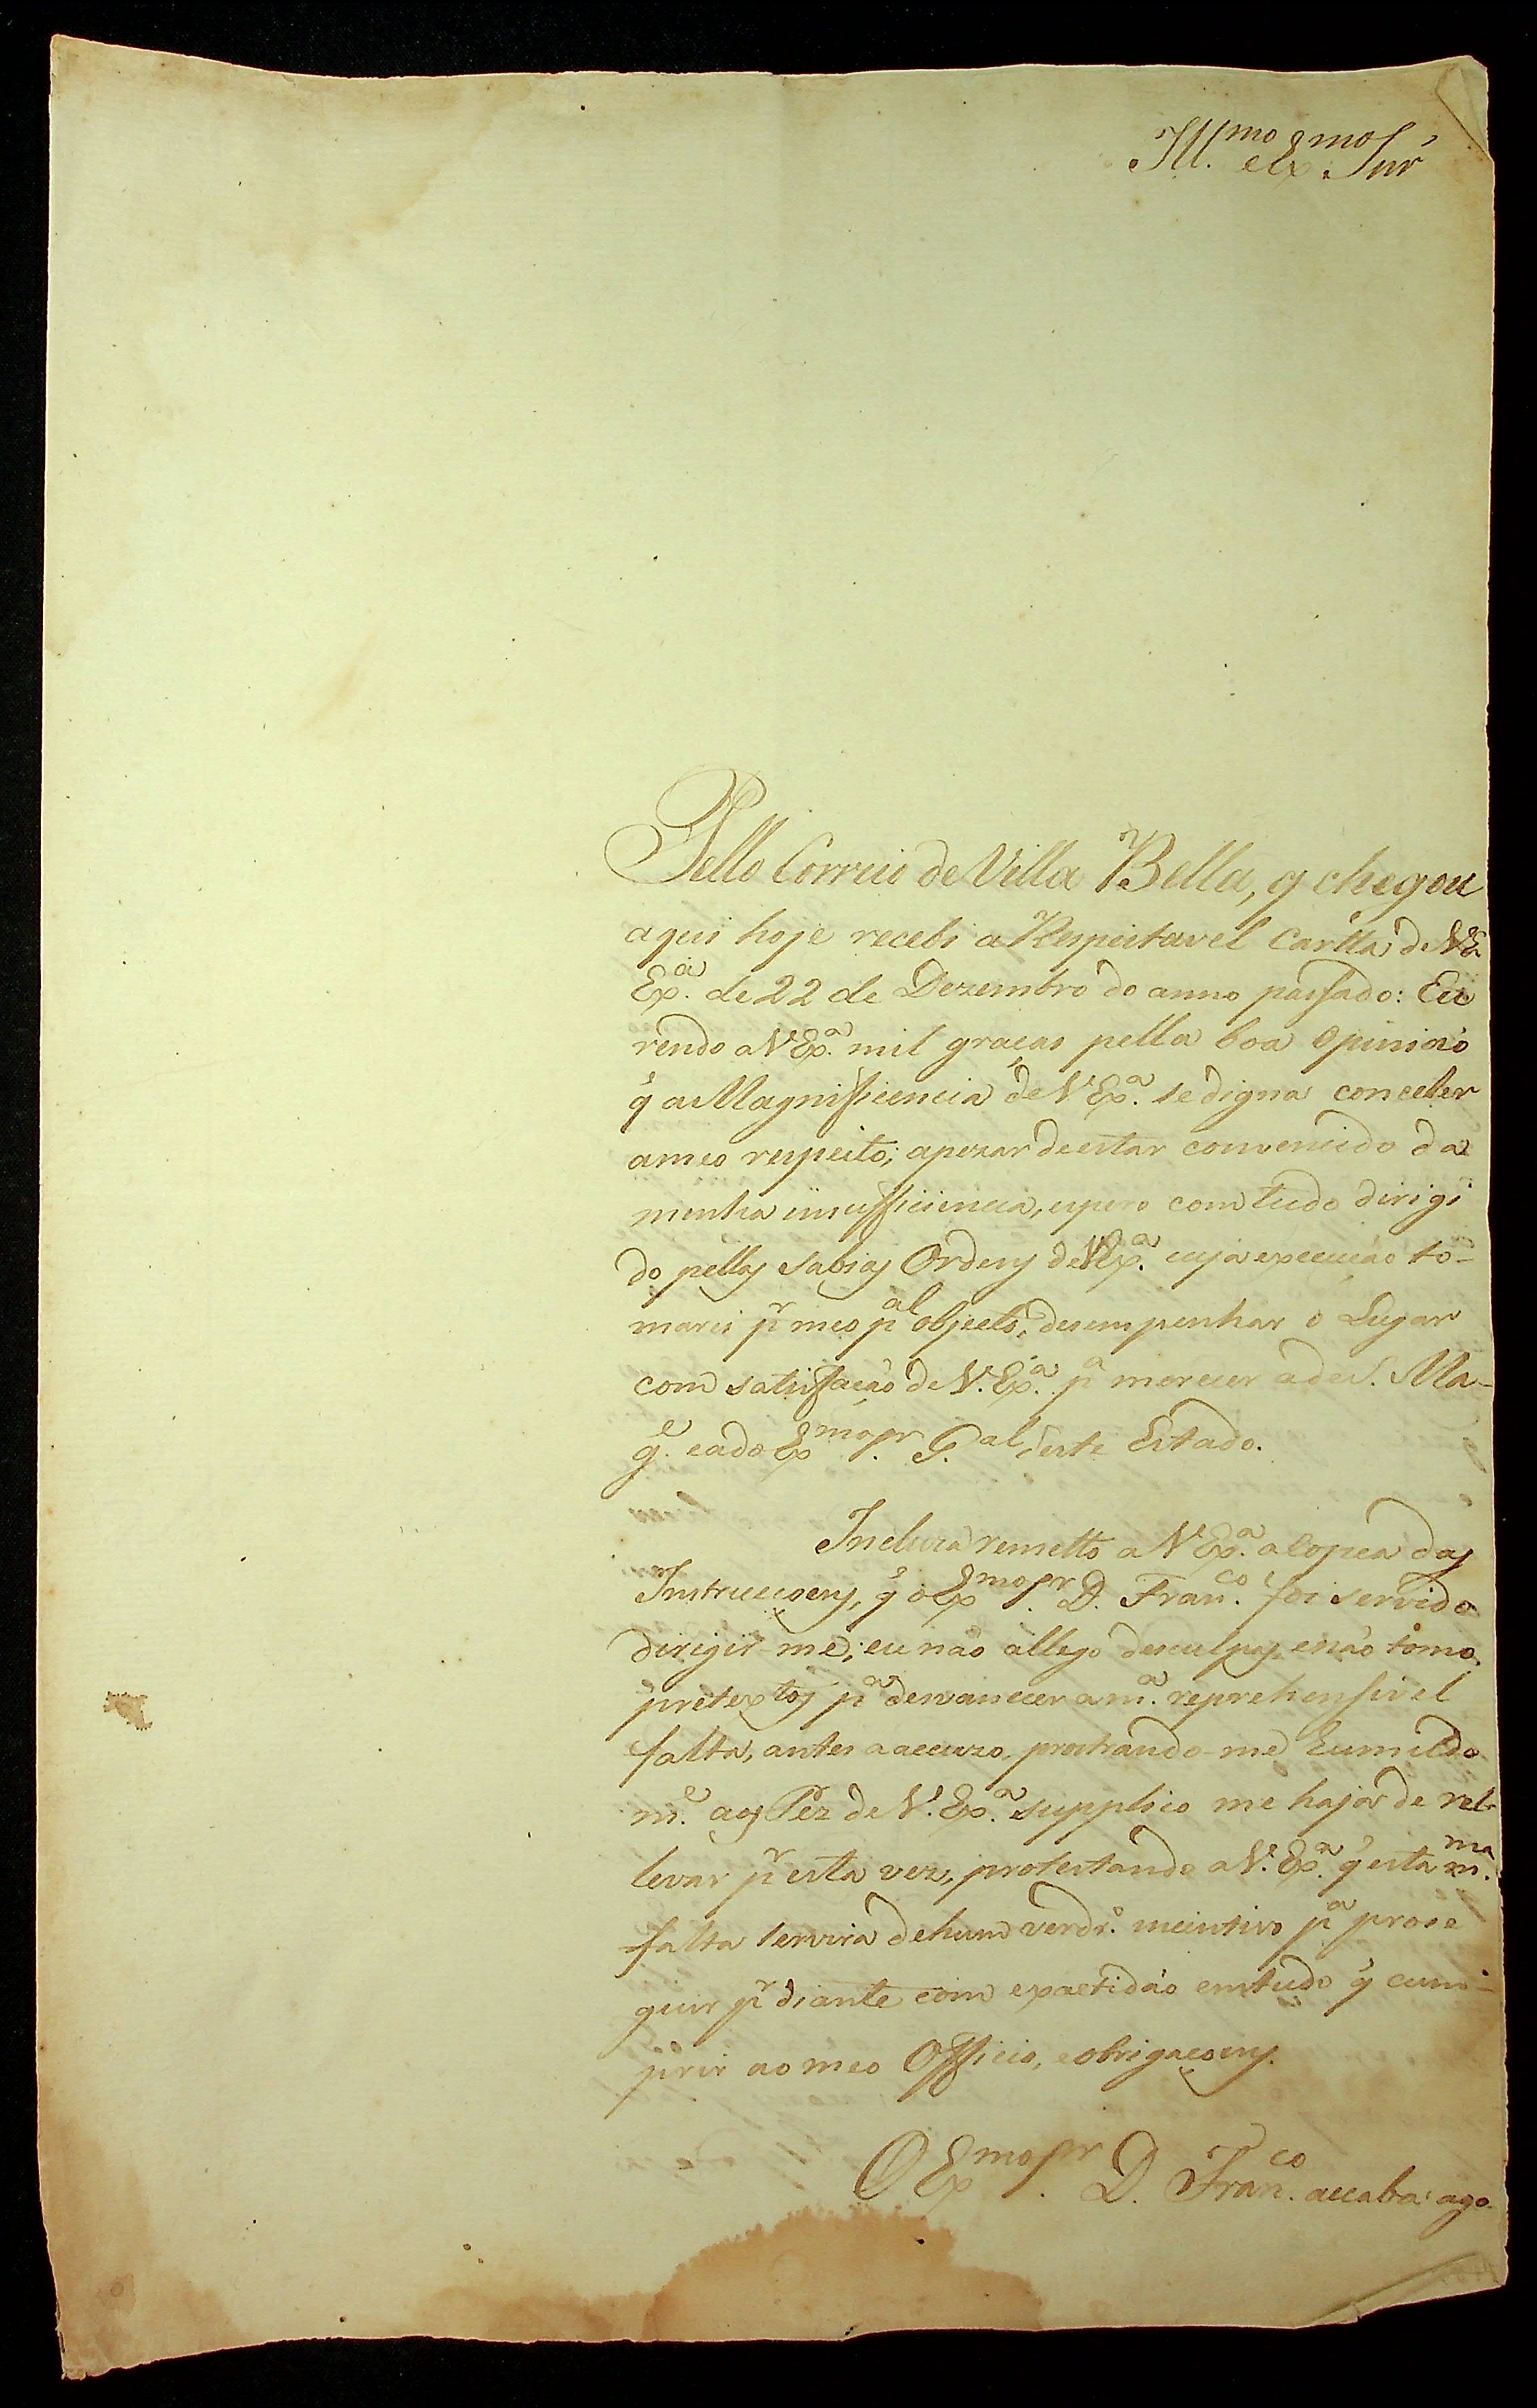 Ill.mo e Ex.mo Snr'
Pello Correio de Villa Bella, q chegou
aqui hoje recebi a Respeitavel Cartta de V.
Ex.a de 22 de Dezembro do anno passado: Eu
rendo a V Ex.a mil graças pella boa opinião
q a Magnificencia de V Ex.a se digna conceber
a meo respeito; apezar de estar convencido da
minha insufficiencia, espero com tudo dirigi
do pellas sabias Ordens de V Ex.a cuja execução to-
marei p.r meo p.al objecto, desempenhar o Lugar
com satisfação de V. Ex.a p.a merecer a de S. Ma-
g.e e a do Ex.mo Sr. G.al deste Estado.
Incluza remetto a V Ex.a a Copea das
Instrucçoens, q o Ex.mo Sr. D. Fran.co foi servido
dirigir-me; eu não allego desculpas, e não tomo
pretextos p.a desvanecer a m.a reprehensivel
falta, antes a accuzo, prostrando-me humilde
m.e aos Pez de V. Ex.a supplico me haja de re-
levar p.r esta vez, protestando a V. Ex.a q esta m.ma
falta servira de hum verdr.o incintivo p.a prose
guir p.r diante com exactidão em tudo q cum-
prir ao meo Officio, e obrigaçoens.
O Ex.mo Sr. D. Fran.co accaba: ago-